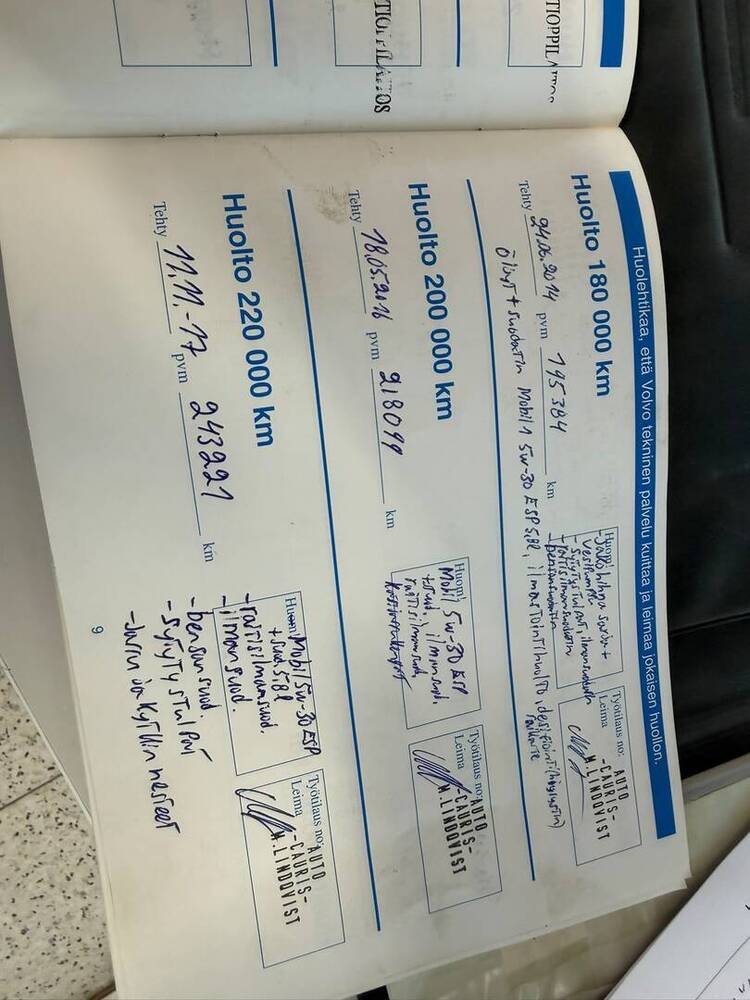 TIOPPILAITOS
TIOPPILAITOS
Huolehtikaa, että Volvo tekninen palvelu kuittaa ja leimaa jokaisen huollon.
Huolto 180 000 km
Tehty 24.06.2014 pvm 195384 km
Huom!
-Jakohihna sarja +
vesipumppu
-sytytystulpat, ilmansuodatin
-raitisilmansuodatin
-bensansuodatin
Työtilaus no:
Leima
AUTO
-CAURIS-
M.LINDQVIST
Öljyt + suodatin Mobil 1 5w-30 ESP 5,8l, ilmastointihuolto, desifiointi (höyrystin)
Huolto 200 000 km
Tehty 18.05.2016 pvm 218099 km
Huom!
Mobil 5w-30 ESP
+suod, ilmansuod,
raitisilmansuod,
Työtilaus no:
Leima
AUTO
-CAURIS-
M.LINDQVIST
Huolto 220 000 km
Tehty 11.11.-17 pvm 243221 km
Huom! Mobil 5w-30 ESP
+ suod. 5,8l
-raitisilmansuod.
-ilmansuod.
-bensansuod.
-sytytystulpat
-Jarru ja kytkin nesteet
Työtilaus no:
Leima
AUTO
-CAURIS-
M.LINDQVIST
9